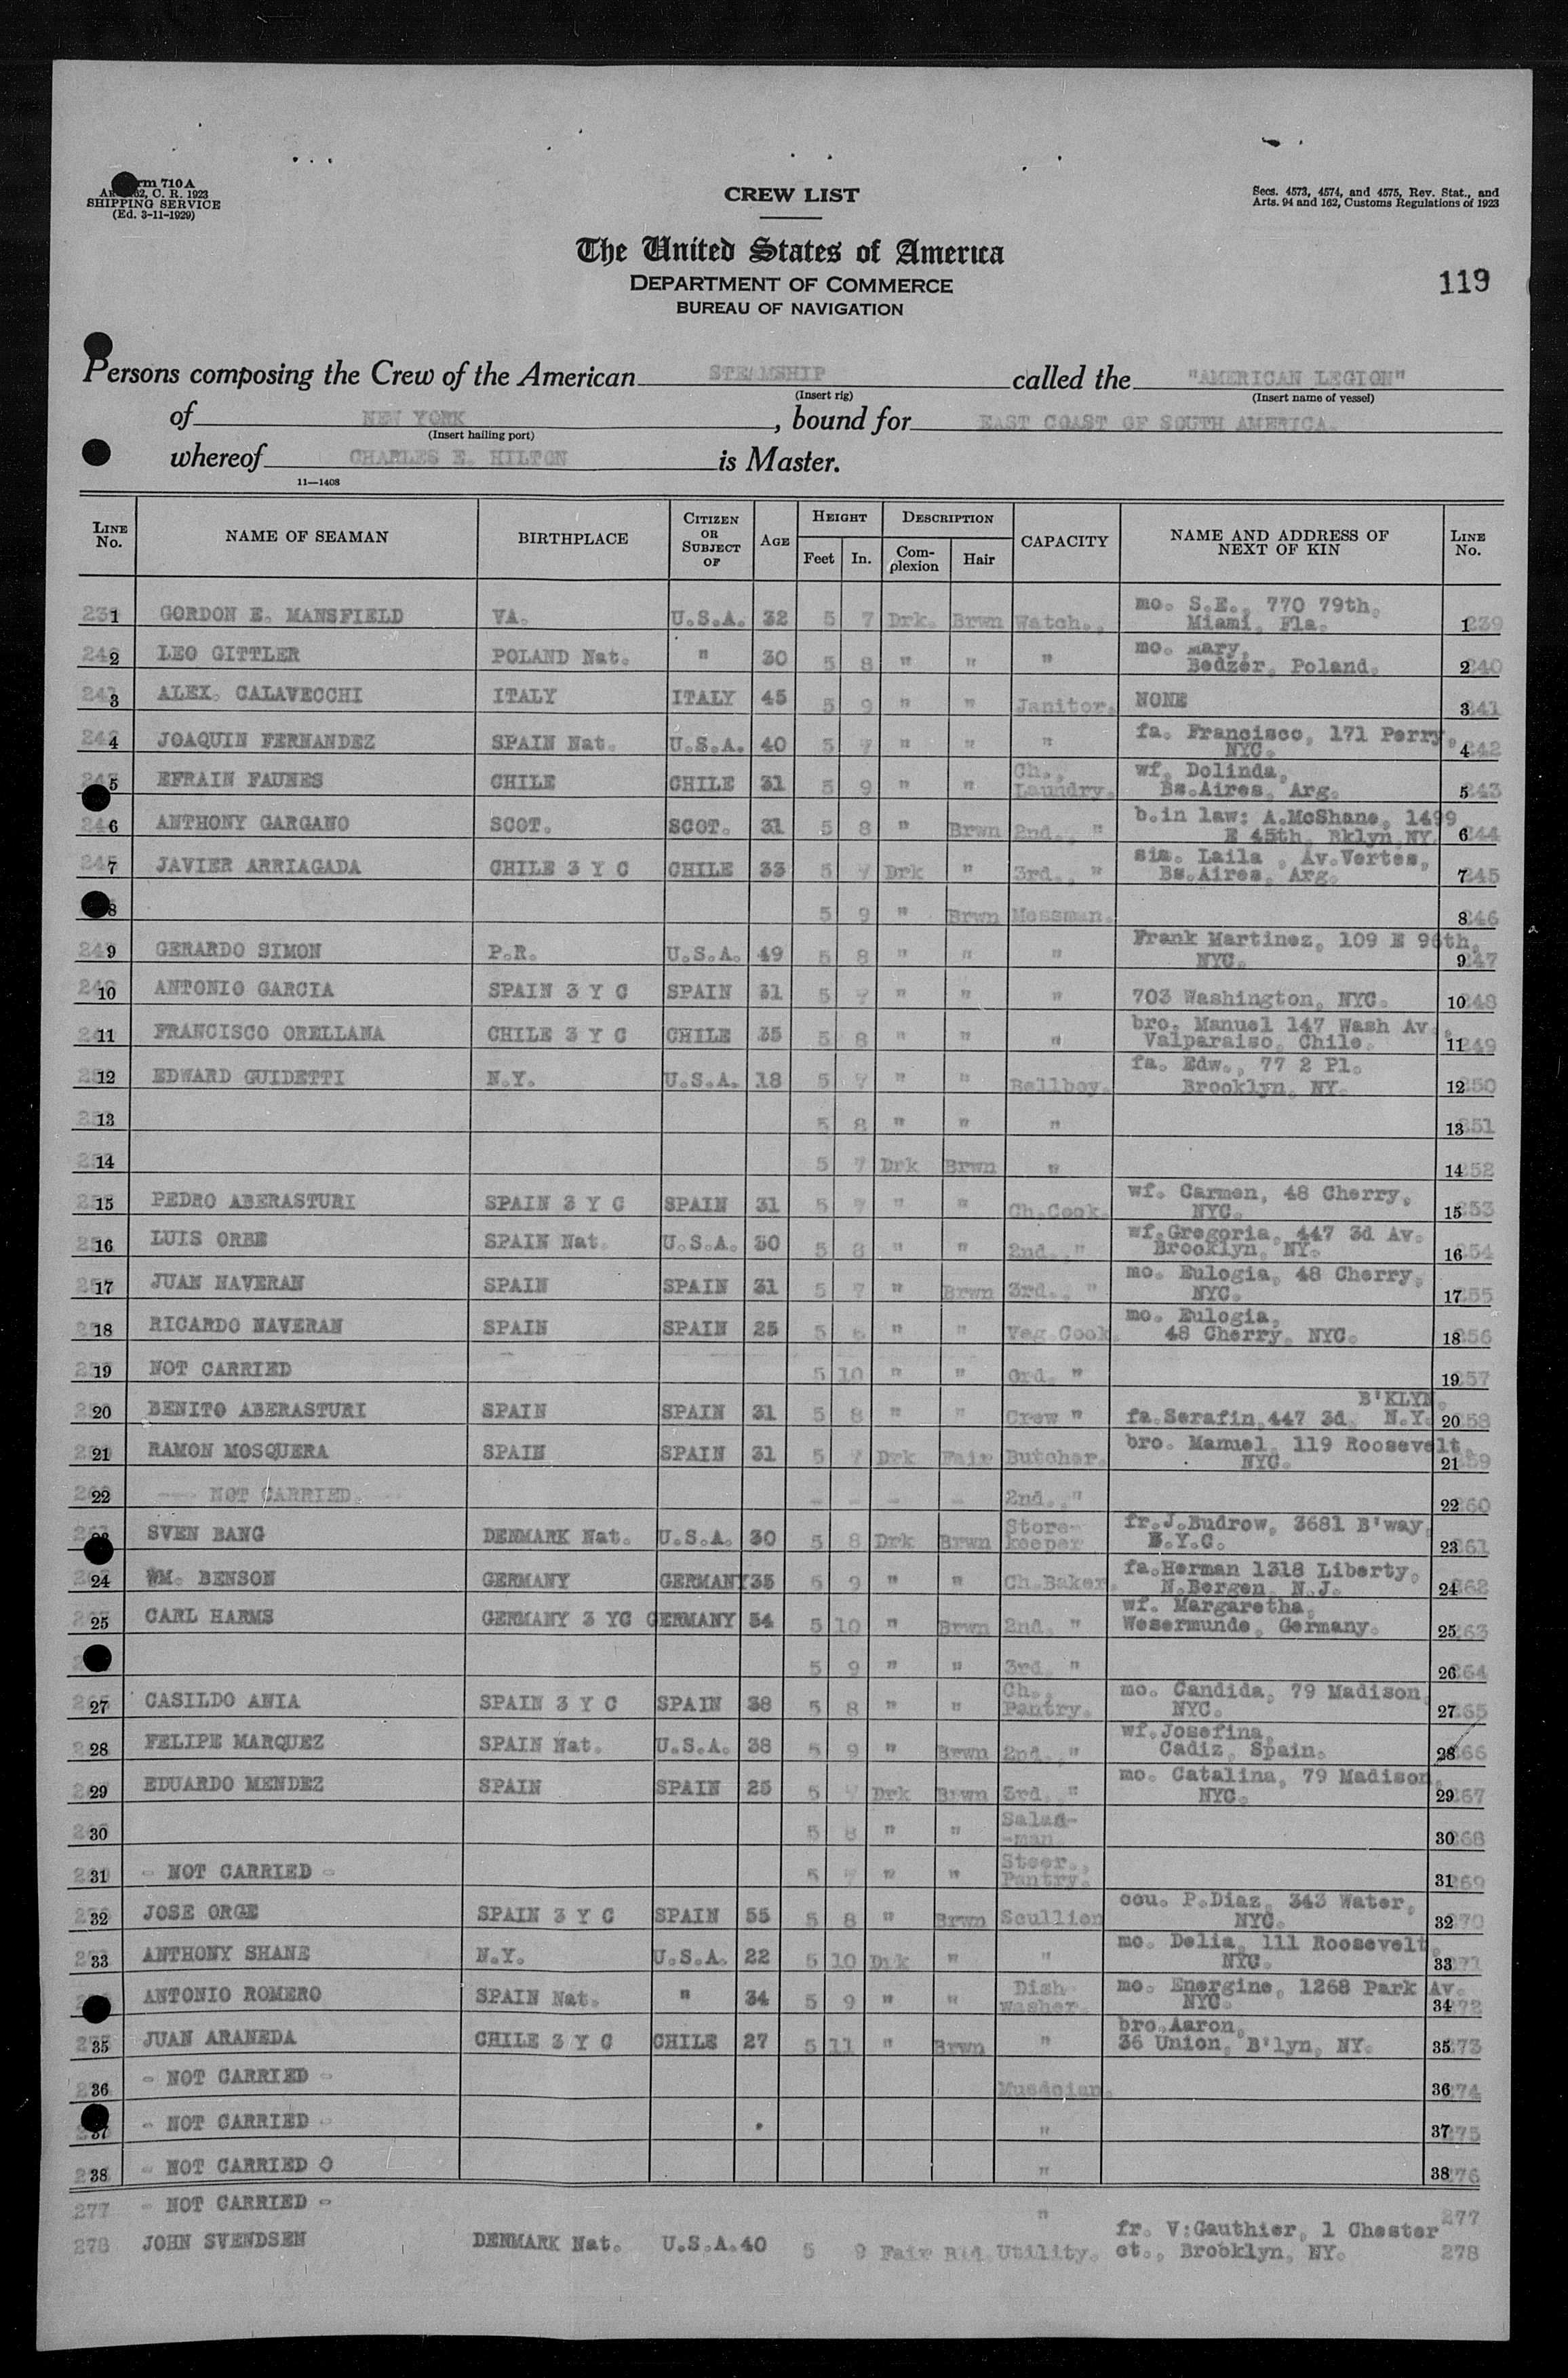 Form 710A
Art. 162, C. R. 1923
SHIPPING SERVICE
(Ed. 3-11-1929)
CREW LIST
Secs. 4573, 4574, and 4575, Rev. Stat., and
Arts. 94 and 162, Customs Regulations of 1923
The United States of America
DEPARTMENT OF COMMERCE
BUREAU OF NAVIGATION
119
Persons composing the Crew of the American STEAMSHIP called the "AMERICAN LEGION"
(Insert rig) (Insert name of vessel)
of NEW YORK, bound for EAST COAST OF SOUTH AMERICA.
(Insert hailing port)
whereof CHARLES E. HILTON is Master.
11—1408
LINE No. NAME OF SEAMAN BIRTHPLACE CITIZEN OR SUBJECT OF AGE HEIGHT Feet In. DESCRIPTION Complexion Hair CAPACITY NAME AND ADDRESS OF NEXT OF KIN LINE No.
1 GORDON E. MANSFIELD VA. U.S.A. 32 5 7 Drk. Brwn Watch. mo. S.E., 770 79th, Miami, Fla. 1 239
2 LEO GITTLER POLAND Nat. " 30 5 8 " " " mo. Mary, Bedzer, Poland. 2 240
3 ALEX. CALAVECCHI ITALY ITALY 45 5 9 " " Janitor. NONE 3 241
4 JOAQUIN FERNANDEZ SPAIN Nat. U.S.A. 40 5 7 " " " fa. Francisco, 171 Perry, NYC. 4 242
5 EFRAIN FAUNES CHILE CHILE 31 5 9 " " Ch., Laundry. wf. Dolinda, Bs.Aires, Arg. 5 243
6 ANTHONY GARGANO SCOT. SCOT. 31 5 8 " Brwn 2nd., " b.in law: A.McShane, 1499 E 45th, Bklyn,NY. 6 244
7 JAVIER ARRIAGADA CHILE 3 Y C CHILE 33 5 7 Drk " 3rd., " sis. Laila, Av.Vertes, Bs.Aires, Arg. 7 245
8 5 9 " Brwn Messman. 8 246
9 GERARDO SIMON P.R. U.S.A. 49 5 8 " " " Frank Martinez, 109 E 96th, NYC. 9 247
10 ANTONIO GARCIA SPAIN 3 Y C SPAIN 31 5 7 " " " 703 Washington, NYC. 10 248
11 FRANCISCO ORELLANA CHILE 3 Y C CHILE 35 5 8 " " " bro. Manuel 147 Wash Av., Valparaiso, Chile. 11 249
12 EDWARD GUIDETTI N.Y. U.S.A. 18 5 7 " " Bellboy. fa. Edw., 77 2 Pl. Brooklyn, NY. 12 250
13 5 8 " " " 13 251
14 5 7 Drk Brwn " 14 252
15 PEDRO ABERASTURI SPAIN 3 Y C SPAIN 31 5 7 " " Ch.Cook. wf. Carmen, 48 Cherry, NYC. 15 253
16 LUIS ORBE SPAIN Nat. U.S.A. 30 5 8 " " 2nd. " wf.Gregoria, 447 3d Av. Brooklyn, NY. 16 254
17 JUAN NAVERAN SPAIN SPAIN 31 5 7 " Brwn 3rd. " mo. Eulogia, 48 Cherry, NYC. 17 255
18 RICARDO NAVERAN SPAIN SPAIN 25 5 " " Veg.Cook. mo. Eulogia, 48 Cherry, NYC. 18 256
19 NOT CARRIED 5 10 " " Ord. " 19 257
20 BENITO ABERASTURI SPAIN SPAIN 31 5 8 " " Crew " fa.Serafin,447 3d. B'KLYN. N.Y. 20 258
21 RAMON MOSQUERA SPAIN SPAIN 31 5 7 Drk Fair Butcher. bro. Manuel, 119 Roosevelt, NYC. 21 259
22 NOT CARRIED. - - - - 2nd. " 22 260
SVEN BANG DENMARK Nat. U.S.A. 30 5 8 Drk Brwn Storekeeper fr.J.Budrow, 3681 B'way, N.Y.C. 23 261
24 WM. BENSON GERMANY GERMANY 35 5 9 " " Ch.Baker. fa.Herman 1318 Liberty, N.Bergen, N.J. 24 262
25 CARL HARMS GERMANY 3 YC GERMANY 54 5 10 " Brwn 2nd. " wf. Margaretha, Wesermunde, Germany. 25 263
5 9 " " 3rd. " 26 264
27 CASILDO ANIA SPAIN 3 Y C SPAIN 38 5 8 " " Ch., Pantry. mo. Candida, 79 Madison, NYC. 27 265
28 FELIPE MARQUEZ SPAIN Nat. U.S.A. 38 5 9 " Brwn 2nd. " wf.Josefina, Cadiz, Spain. 28 266
29 EDUARDO MENDEZ SPAIN SPAIN 25 5 7 Drk Brwn 3rd. " mo. Catalina, 79 Madison, NYC. 29 267
30 5 8 " " Salad-man 30 268
31 - NOT CARRIED - 5 7 " " Steer., Pantry. 31 269
32 JOSE ORGE SPAIN 3 Y C SPAIN 55 5 8 " Brwn Scullion cou. P.Diaz, 343 Water, NYC. 32 270
33 ANTHONY SHANE N.Y. U.S.A. 22 5 10 Drk " " mo. Delia, 111 Roosevelt, NYC. 33 271
ANTONIO ROMERO SPAIN Nat. " 34 5 9 " " Dish washer. mo. Energine, 1268 Park Av. NYC. 34 272
35 JUAN ARANEDA CHILE 3 Y C CHILE 27 5 11 " Brwn " bro.Aaron, 36 Union, B'lyn, NY. 35 273
36 - NOT CARRIED - Musician. 36 274
37 - NOT CARRIED - " 37 275
38 - NOT CARRIED O " 38 276
277 - NOT CARRIED - " 277
278 JOHN SVENDSEN DENMARK Nat. U.S.A. 40 5 9 Fair Utility. fr. V:Gauthier, 1 Chester ct., Brooklyn, NY. 278